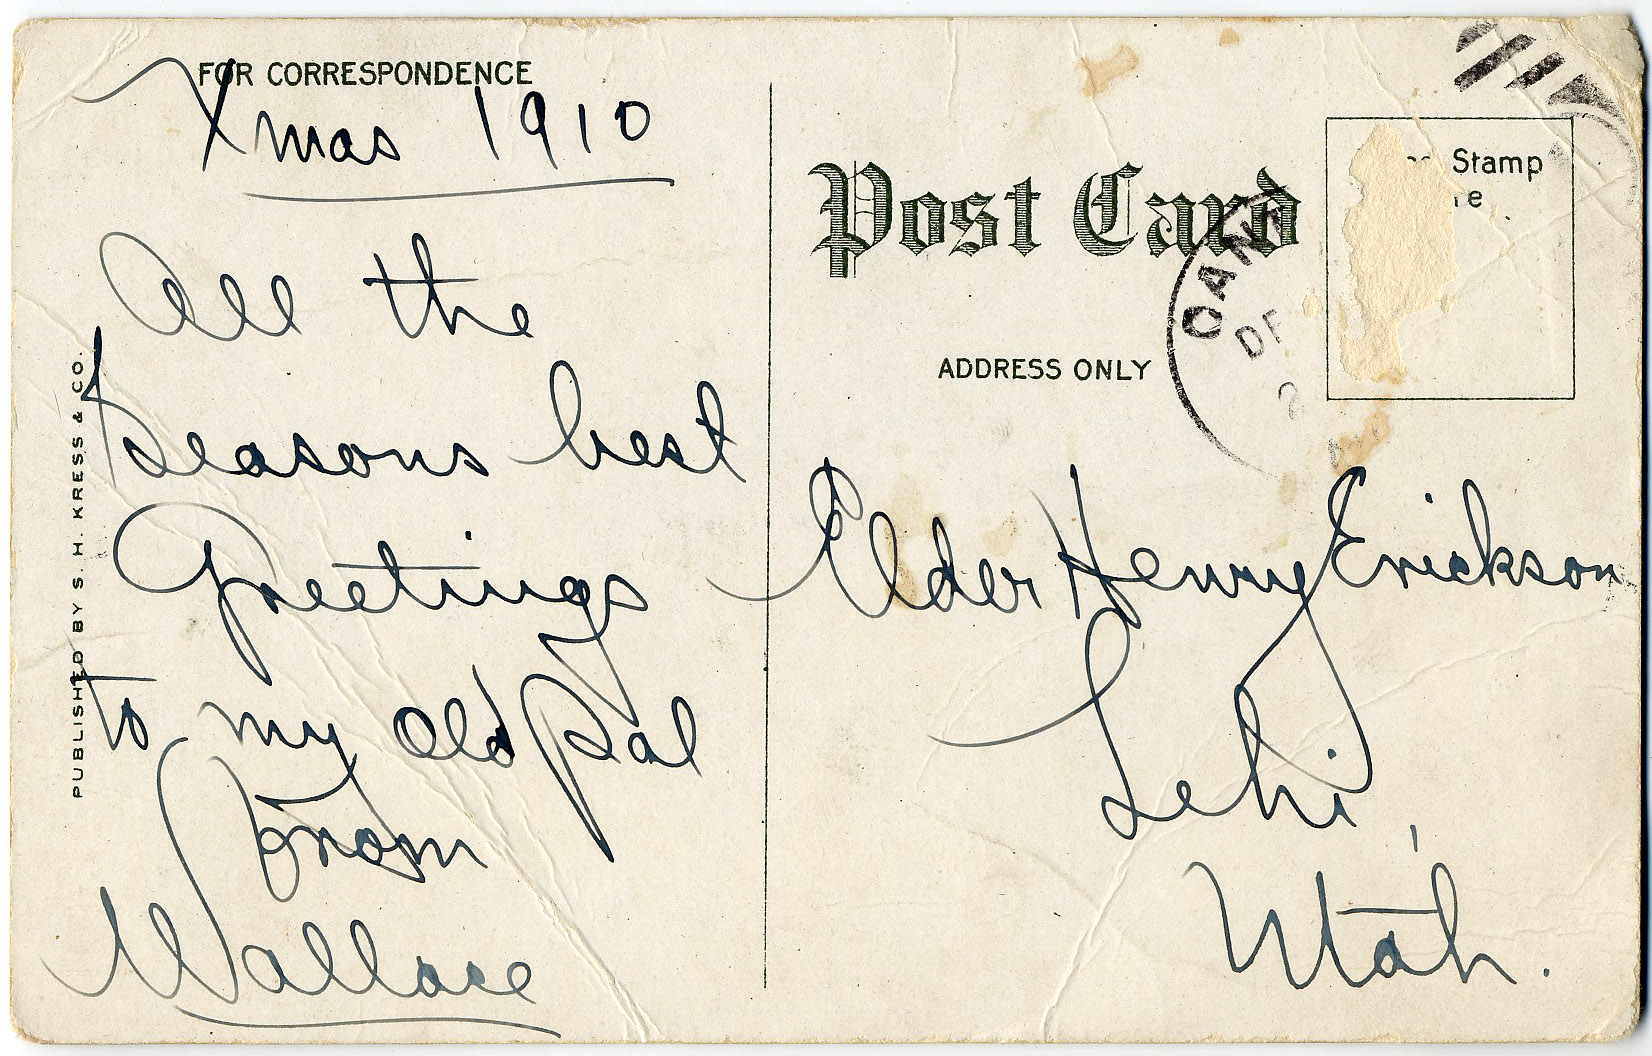 FOR CORRESPONDENCE
Xmas 1910
All the
Seasons best
Greetings
to my Old Pal
From
Wallace
PUBLISHED BY S. H. KRESS & CO.
Post Card
Stamp
ADDRESS ONLY
Elder Henry Erickson
Lehi,
Utah.